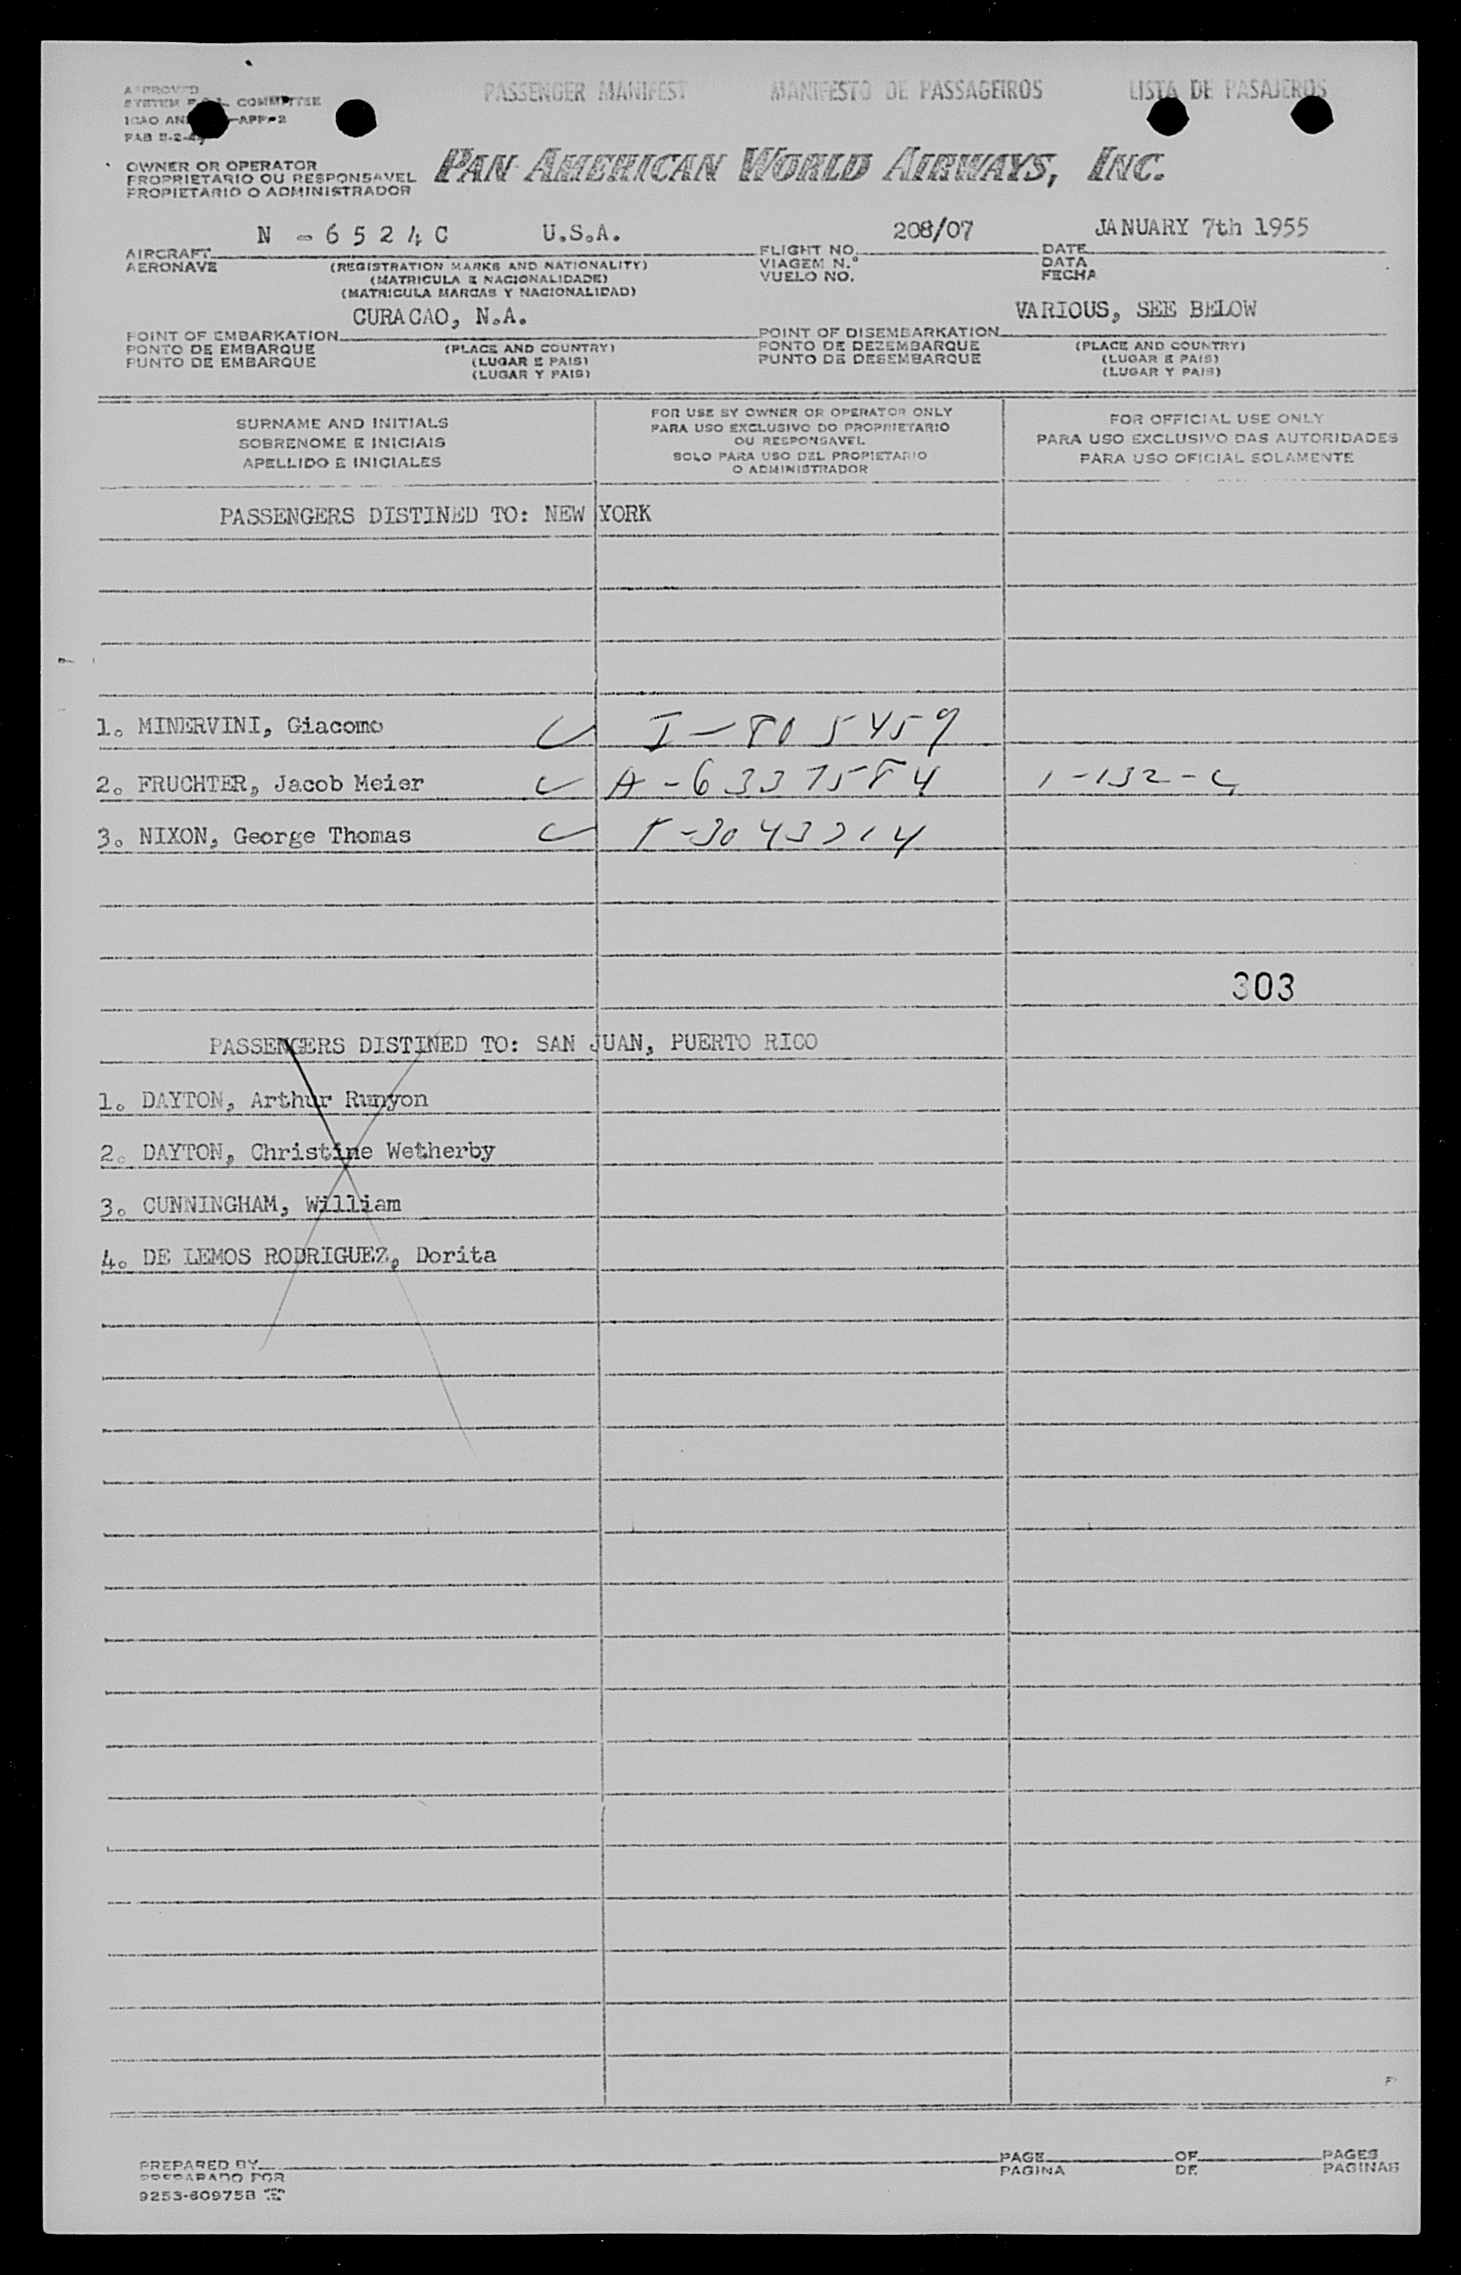 PASSENGER MANIFEST MANIFESTO DE PASSAGEIROS LISTA DE PASAJEROS
APPROVED
SYSTEM COMMITTEE
ICAO APP-2
FAB
OWNER OR OPERATOR
PROPRIETARIO OU RESPONSAVEL
PROPIETARIO O ADMINISTRADOR
PAN AMERICAN WORLD AIRWAYS, INC.
N - 6 5 2 4 C U.S.A. 208/07 JANUARY 7th 1955
AIRCRAFT FLIGHT NO. DATE
AERONAVE (REGISTRATION MARKS AND NATIONALITY) VIAGEM N.º DATA
(MATRICULA E NACIONALIDADE) VUELO NO. FECHA
(MATRICULA MARCAS Y NACIONALIDAD)
CURACAO, N.A. VARIOUS, SEE BELOW
POINT OF EMBARKATION POINT OF DISEMBARKATION
PONTO DE EMBARQUE (PLACE AND COUNTRY) PONTO DE DEZEMBARQUE (PLACE AND COUNTRY)
PUNTO DE EMBARQUE (LUGAR E PAIS) PUNTO DE DESEMBARQUE (LUGAR E PAIS)
(LUGAR Y PAIS) (LUGAR Y PAIS)
SURNAME AND INITIALS
SOBRENOME E INICIAIS
APELLIDO E INICIALES
FOR USE BY OWNER OR OPERATOR ONLY
PARA USO EXCLUSIVO DO PROPRIETARIO
OU RESPONSAVEL
SOLO PARA USO DEL PROPIETARIO
O ADMINISTRADOR
FOR OFFICIAL USE ONLY
PARA USO EXCLUSIVO DAS AUTORIDADES
PARA USO OFICIAL SOLAMENTE
PASSENGERS DISTINED TO: NEW YORK
1. MINERVINI, Giacomo I-805459
2. FRUCHTER, Jacob Meier A-6337584 1-132-
3. NIXON, George Thomas
303
PASSENGERS DISTINED TO: SAN JUAN, PUERTO RICO
1. DAYTON, Arthur Runyon
2. DAYTON, Christine Wetherby
3. CUNNINGHAM, William
4. DE LEMOS RODRIGUEZ, Dorita
PREPARED BY PAGE OF PAGES
PREPARADO POR PAGINA DE PAGINAS
9253-609758